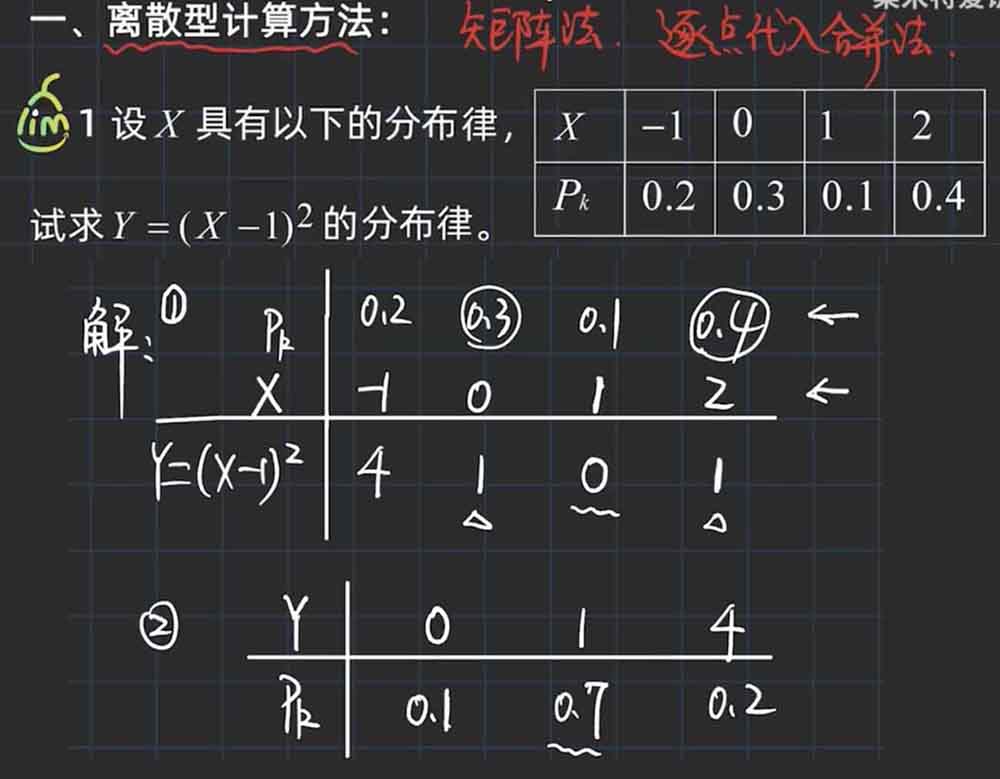 一、离散型计算方法：矩阵法. 逐点代入合并法.
lim 1 设 X 具有以下的分布律，
X -1 0 1 2
Pₖ 0.2 0.3 0.1 0.4
试求 Y = (X -1)² 的分布律。
解: ① Pₖ 0.2 0.3 0.1 0.4 ←
X -1 0 1 2 ←
Y=(X-1)² 4 1 0 1
② Y 0 1 4
Pₖ 0.1 0.7 0.2